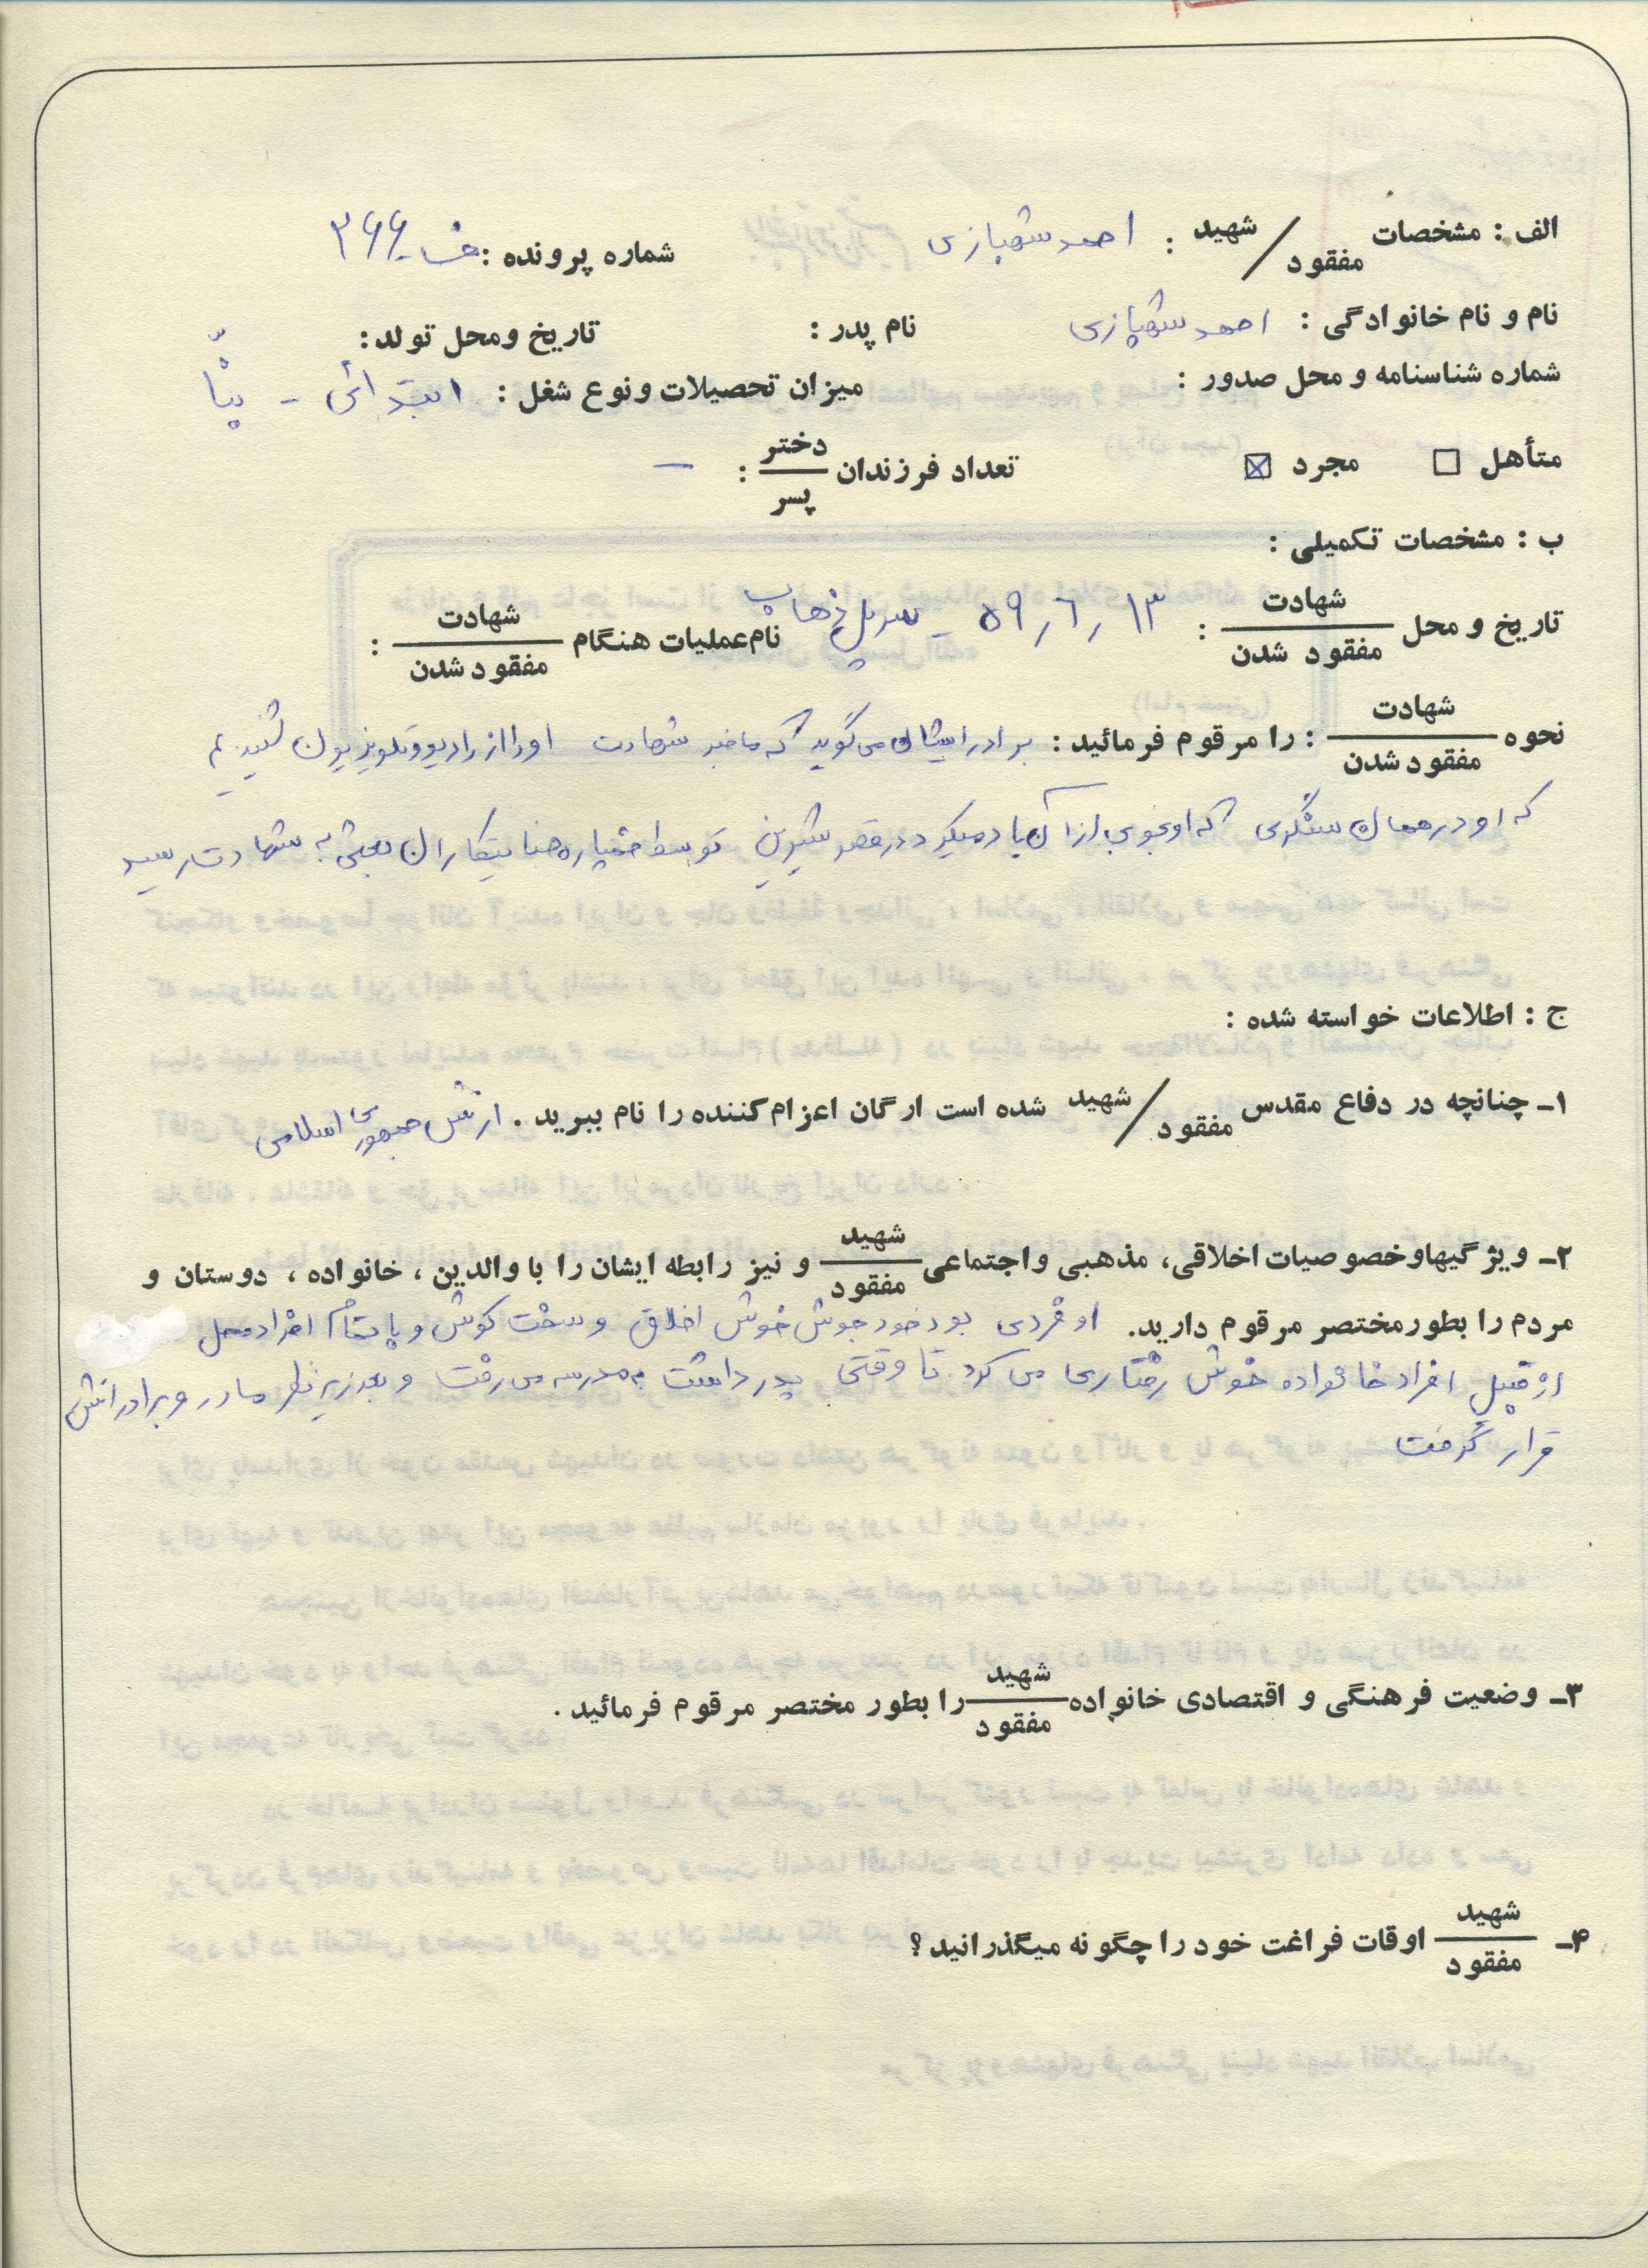 الف : مشخصات شهید / مفقود : احمد شهبازی شماره پرونده : خـ ۳۶۶
نام و نام خانوادگی : احمد شهبازی نام پدر : تاریخ و محل تولد :
شماره شناسنامه و محل صدور : میزان تحصیلات و نوع شغل : ابتدائی - بنّا
متأهل ☐ مجرد ☒ تعداد فرزندان دختر / پسر : —
ب : مشخصات تکمیلی :
تاریخ و محل شهادت / مفقود شدن : ۱۳ر۶ر۵۹ - سرپل ذهاب نام عملیات هنگام شهادت / مفقود شدن :
نحوه شهادت / مفقود شدن : را مرقوم فرمائید : برادر ایشان می گوید که ما خبر شهادت او را از رادیو و تلویزیون شنیدیم
که او در همان سنگری که او بخوبی از آن یاد میکرد در قصر شیرین توسط خمپاره جنایتکاران بعثی به شهادت رسید
ج : اطلاعات خواسته شده :
۱ـ چنانچه در دفاع مقدس شهید / مفقود شده است ارگان اعزام کننده را نام ببرید . ارتش جمهوری اسلامی
۲ـ ویژگیها و خصوصیات اخلاقی، مذهبی و اجتماعی شهید / مفقود و نیز رابطه ایشان را با والدین ، خانواده ، دوستان و
مردم را بطور مختصر مرقوم دارید. او فردی بود خود جوش خوش اخلاق و سخت کوش و با تمام افراد محل
از قبیل افراد خانواده خوش رفتاری می کرد تا وقتی پدر داشت به مدرسه می رفت و بعد زیر نظر مادر و برادرانش
قرار گرفت
۳ـ وضعیت فرهنگی و اقتصادی خانواده شهید / مفقود را بطور مختصر مرقوم فرمائید .
۴ـ شهید / مفقود اوقات فراغت خود را چگونه میگذرانید ؟